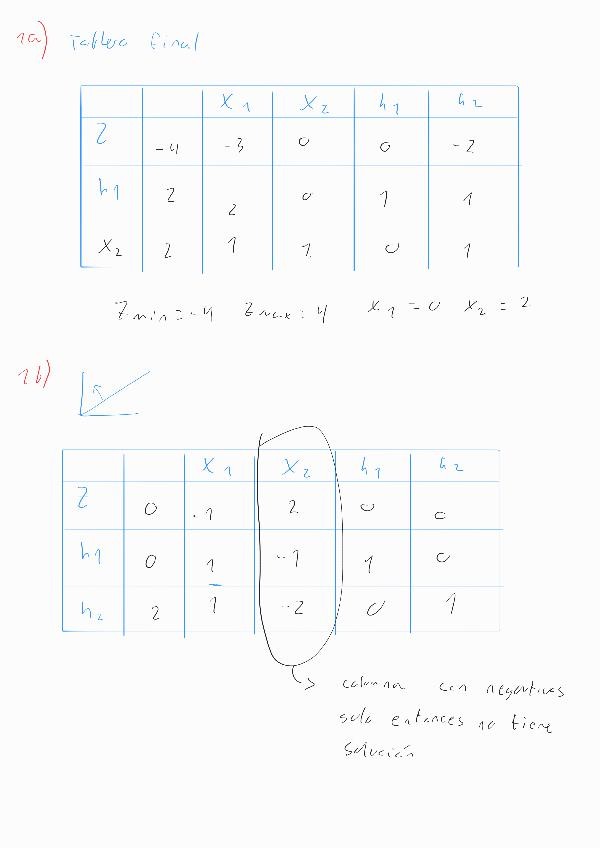 1a) Tablero final
X1 X2 h1 h2
Z -4 -3 0 0 -2
h1 2 2 0 1 1
X2 2 1 1 0 1
Zmin = -4 Zmax = 4 X1 = 0 X2 = 2
1b)
X1 X2 h1 h2
Z 0 -1 2 0 0
h1 0 1 -1 1 0
h2 2 1 -2 0 1
columna con negativos
solo entonces no tiene
solución